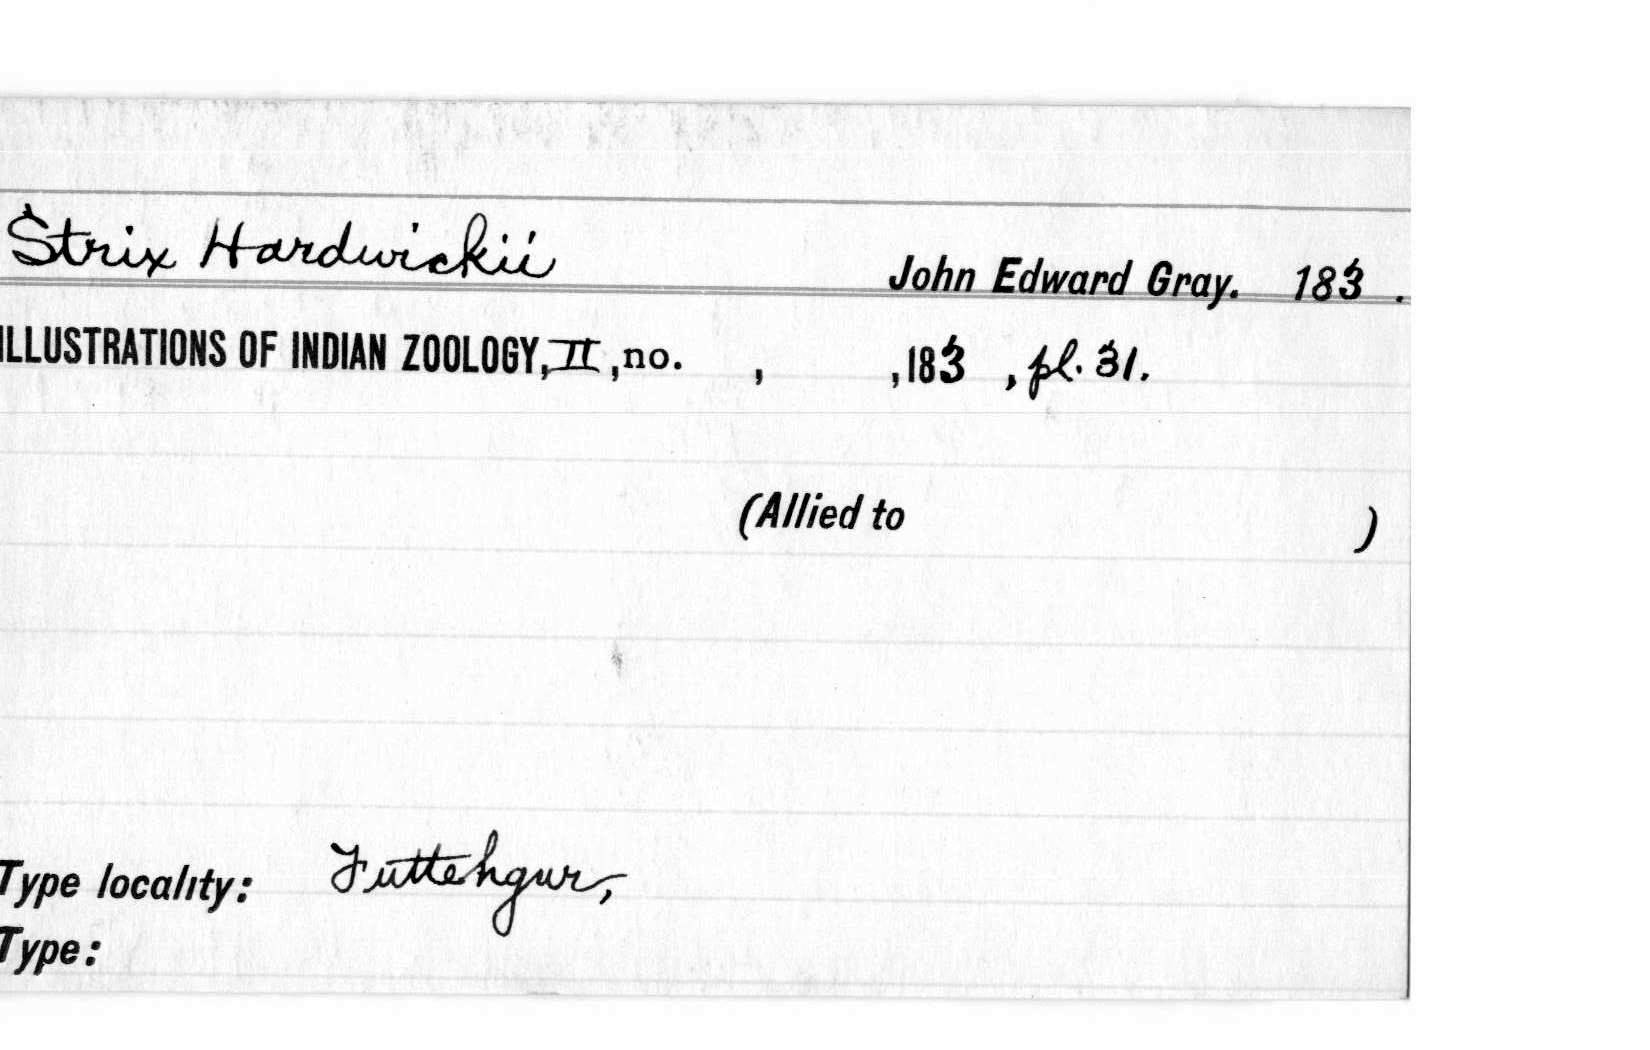 Strix Hardwickii
John Edward Gray. 183 .
ILLUSTRATIONS OF INDIAN ZOOLOGY, II, no. , ,183 , pl. 31.
(Allied to )
Type locality: Futtehgur,
Type: